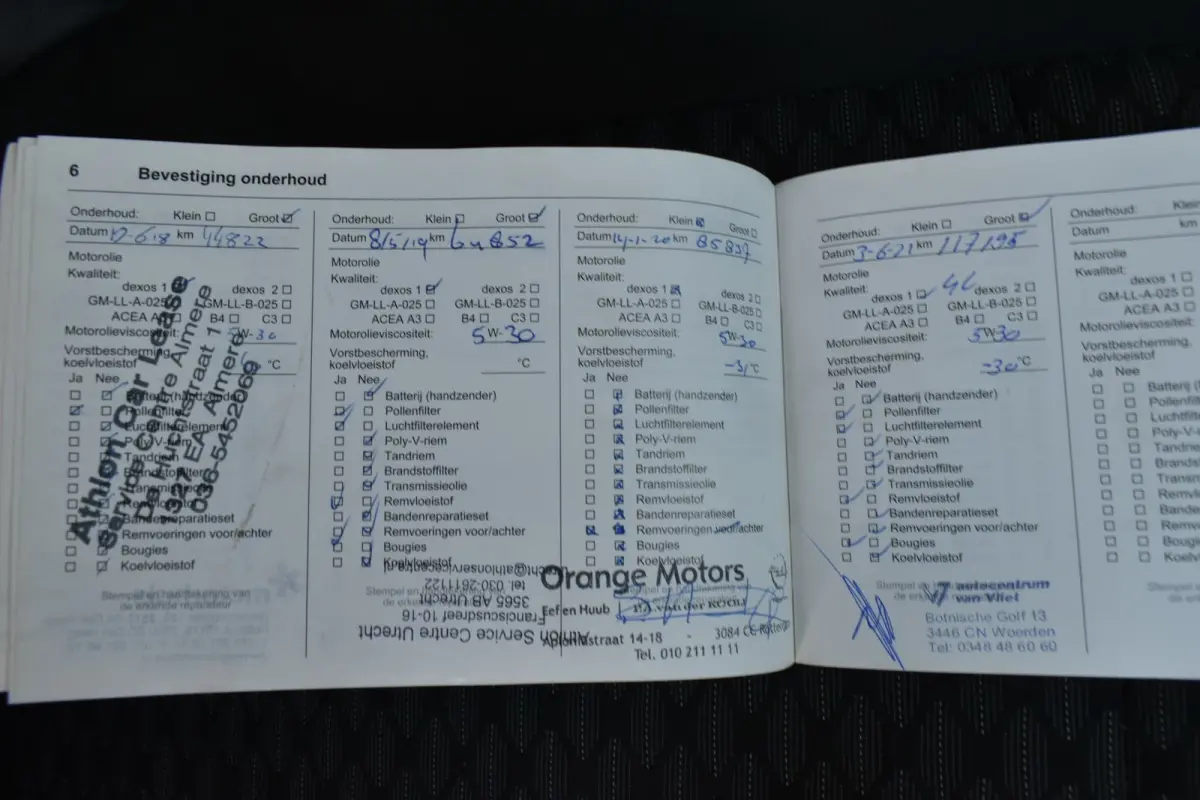 6 Bevestiging onderhoud
Onderhoud: Klein Groot
Datum 12-6-18 km 44822
Motorolie
Kwaliteit:
dexos 1 dexos 2
GM-LL-A-025 GM-LL-B-025
ACEA A3 B4 C3
Motorolieviscositeit: 5W-30
Vorstbescherming,
koelvloeistof °C
Ja Nee
Batterij (handzender)
Pollenfilter
Luchtfilterelement
Poly-V-riem
Tandriem
Brandstoffilter
Transmissieolie
Remvloeistof
Bandenreparatieset
Remvoeringen voor/achter
Bougies
Koelvloeistof
Stempel en handtekening van
de erkende reparateur
Athlon Car Lease
Service Centre Almere
De Huchtstraat 1
EA Almere
036-5452069
Onderhoud: Klein Groot
Datum 8/5/19 km 64852
Motorolie
Kwaliteit:
dexos 1 dexos 2
GM-LL-A-025 GM-LL-B-025
ACEA A3 B4 C3
Motorolieviscositeit: 5W-30
Vorstbescherming,
koelvloeistof °C
Ja Nee
Batterij (handzender)
Pollenfilter
Luchtfilterelement
Poly-V-riem
Tandriem
Brandstoffilter
Transmissieolie
Remvloeistof
Bandenreparatieset
Remvoeringen voor/achter
Bougies
Koelvloeistof
Athlon Service Centre Utrecht
Franciscusdreef 10-16
3565 AB Utrecht
tel. 030-2611122
Onderhoud: Klein Groot
Datum 14-1-20 km 85837
Motorolie
Kwaliteit:
dexos 1 dexos 2
GM-LL-A-025 GM-LL-B-025
ACEA A3 B4 C3
Motorolieviscositeit: 5W-30
Vorstbescherming,
koelvloeistof -31 °C
Ja Nee
Batterij (handzender)
Pollenfilter
Luchtfilterelement
Poly-V-riem
Tandriem
Brandstoffilter
Transmissieolie
Remvloeistof
Bandenreparatieset
Remvoeringen voor/achter
Bougies
Koelvloeistof
Orange Motors
Eef en Huub
P.A. van der KOOIJ
straat 14-18 - 3084
Tel. 010 211 11 11
Onderhoud: Klein Groot
Datum 3-6-21 km 117195
Motorolie
Kwaliteit: 4L
dexos 1 dexos 2
GM-LL-A-025 GM-LL-B-025
ACEA A3 B4 C3
Motorolieviscositeit: 5W-30
Vorstbescherming,
koelvloeistof -30 °C
Ja Nee
Batterij (handzender)
Pollenfilter
Luchtfilterelement
Poly-V-riem
Tandriem
Brandstoffilter
Transmissieolie
Remvloeistof
Bandenreparatieset
Remvoeringen voor/achter
Bougies
Koelvloeistof
autocentrum
van Vliet
Botnische Golf 13
3446 CN Woerden
Tel: 0348 48 60 60
Onderhoud:
Datum km
Motorolie
Kwaliteit:
dexos 1
GM-LL-A-025
ACEA A3
Motorolieviscositeit:
Vorstbescherming,
koelvloeistof
Ja Nee